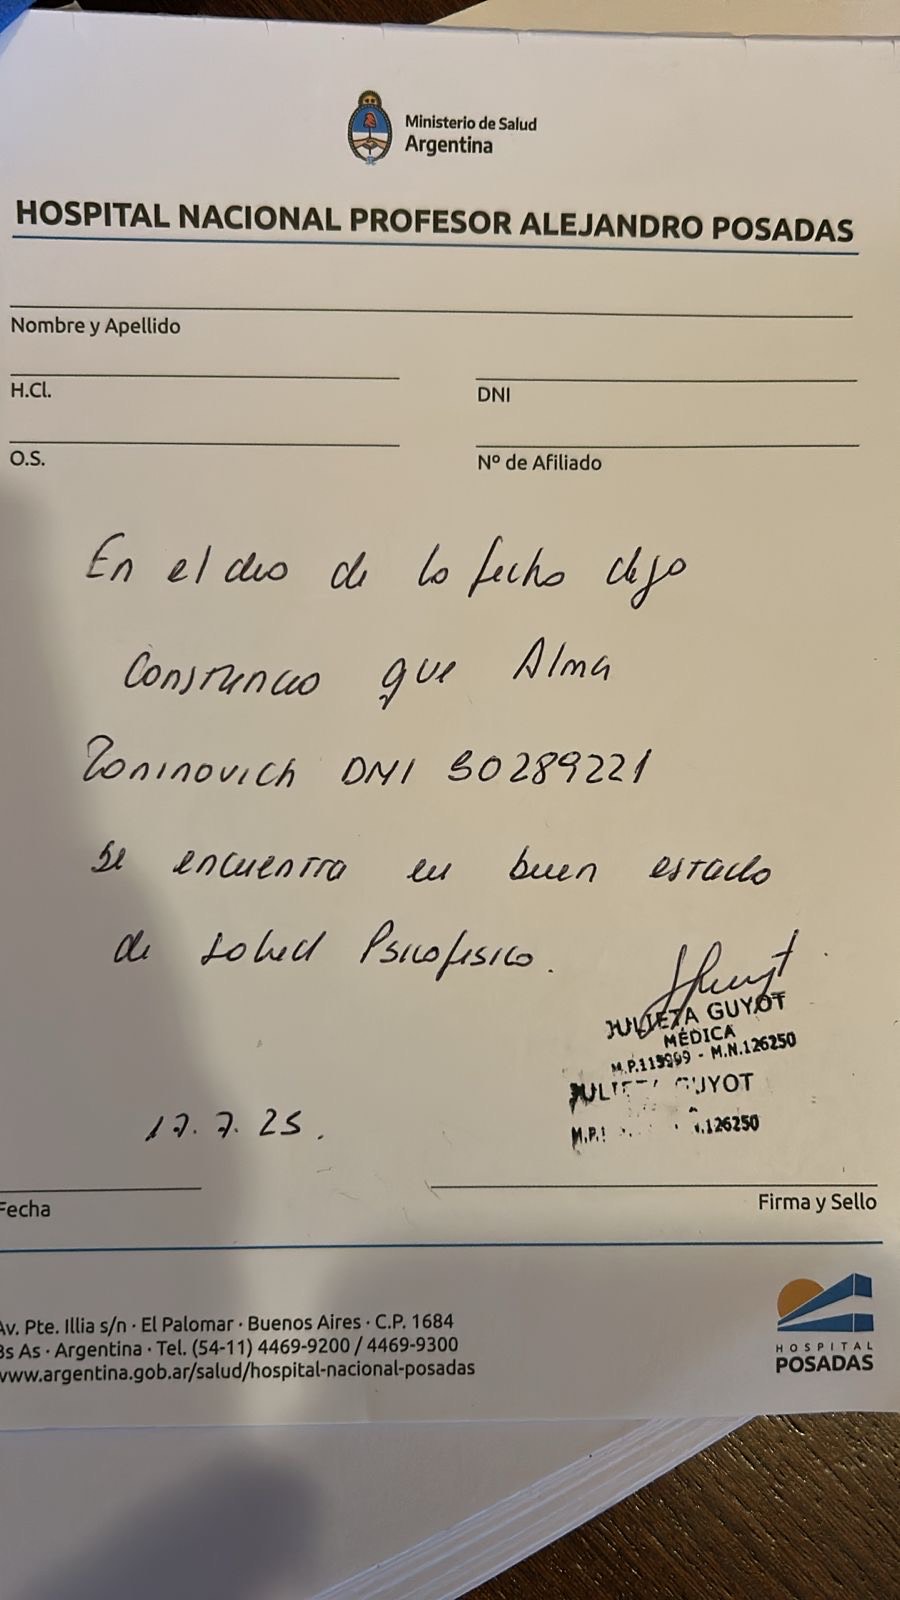 Ministerio de Salud
Argentina
HOSPITAL NACIONAL PROFESOR ALEJANDRO POSADAS
Nombre y Apellido
H.Cl.
DNI
O.S.
Nº de Afiliado
En el dia de la fecha dejo
constancia que Alma
Toninovich DNI 50289221
se encuentra en buen estado
de salud Psicofisico.
JULIETA GUYOT
MÉDICA
M.P.115999 - M.N.126250
JULIETA GUYOT
M.P.1 .126250
17.7.25.
Fecha
Firma y Sello
Av. Pte. Illia s/n · El Palomar · Buenos Aires · C.P. 1684
Bs As · Argentina · Tel. (54-11) 4469-9200 / 4469-9300
www.argentina.gob.ar/salud/hospital-nacional-posadas
HOSPITAL
POSADAS